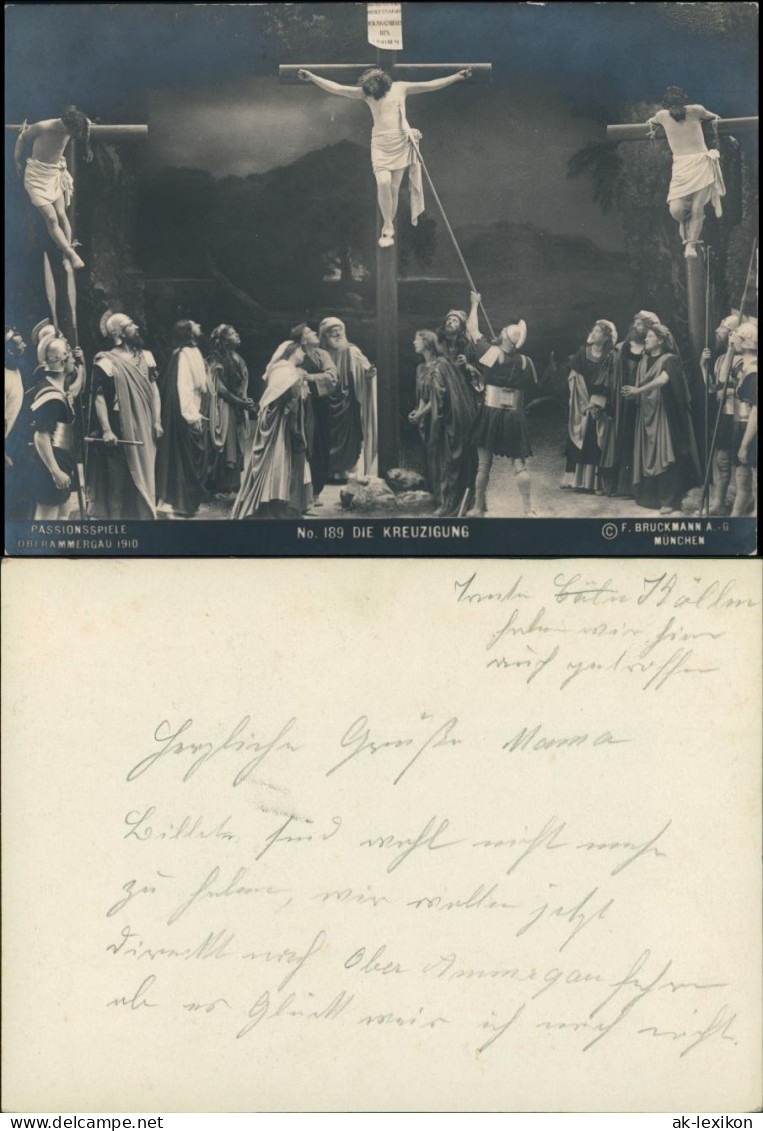 PASSIONSSPIELE
OBERAMMERGAU 1910
No. 189 DIE KREUZIGUNG
© F. BRUCKMANN A.-G
MÜNCHEN
Tante Köllm
haben wir hier
auch getroffen
Herzliche Grüße Mama
Billets sind wohl nicht mehr
zu haben, wir wollen jetzt
direkt nach Ober Ammergau fahren
ob es Glückt weis ich noch nicht.
www.delcampe.net
ak-lexikon